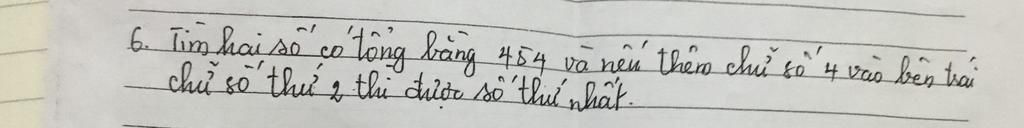 6. Tìm hai số có tổng bằng 454 và nếu thêm chữ số 4 vào bên trái
chữ số thứ 2 thì được số thứ nhất.